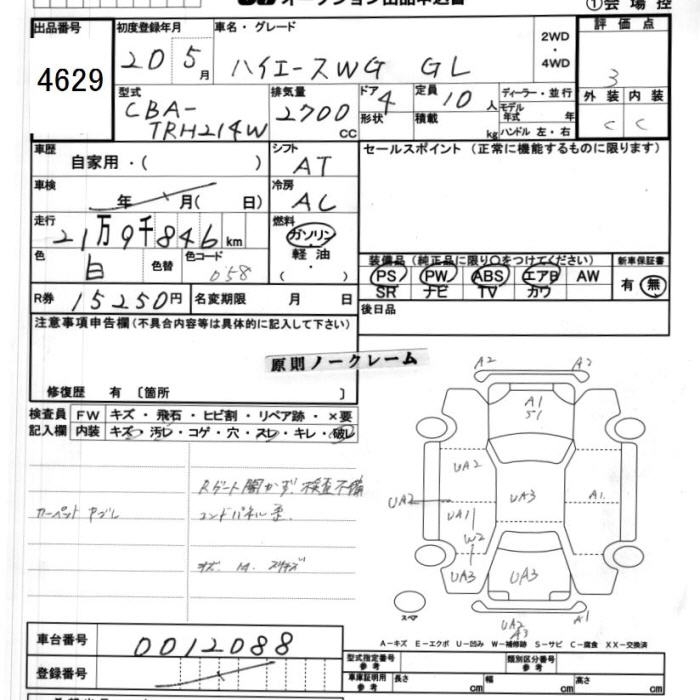 オークション出品申込書
①会場控
出品番号 4629
初度登録年月 20 5月
車名・グレード ハイエースWG GL
2WD・4WD
評価点 3
外装 C 内装 C
型式 CBA-TRH214W
排気量 2700cc
ドア 4 形状
定員 10人 積載 kg
ディーラー・並行
モデル年式 年式
ハンドル 左・右
車歴 自家用・( )
シフト AT
セールスポイント(正常に機能するものに限ります)
車検 年 月( 日)
冷房 AC
走行 21万9千846km
燃料 ガソリン 軽油・( )
色 白 色替 色コード 058
装備品(純正品に限り○をつけてください)
PS PW ABS エアB AW
SR ナビ TV カワ
新車保証書 有 無
R券 15250円
名変期限 月 日
後日品
注意事項申告欄(不具合内容等は具体的に記入して下さい)
原則ノークレーム
修復歴 有〔箇所 〕
検査員記入欄
FW キズ・飛石・ヒビ割・リペア跡・×要
内装 キズ・汚レ・コゲ・穴・スレ・キレ・破レ
Rゲート開かず 検査不備
カーペット
コンドパネル歪
A2 A2
A1
S1
UA2
UA2
UA3
A1
UA1
W2
UA3
UA3
UA2
A3
A1
スペア
A－キズ E－エクボ U－凹み W－補修跡 S－サビ C－腐食 XX－交換済
車台番号 0012088
登録番号
型式指定番号 参考
類別区分番号 参考
車庫証明用 参考
長さ cm 幅 cm 高さ cm